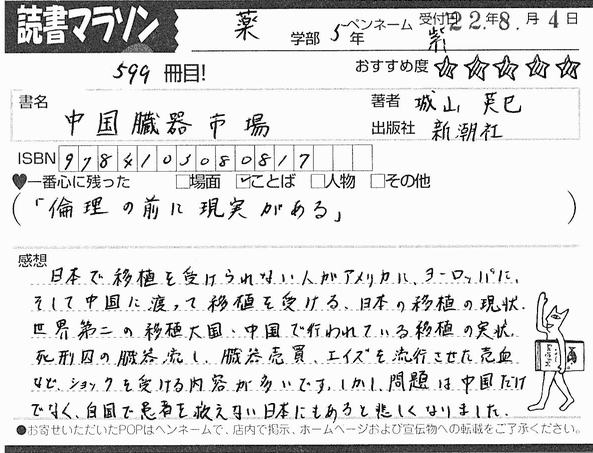 読書マラソン
薬 学部 5年 ペンネーム 紫 受付日 22年8.月4日
599 冊目!
おすすめ度 ☆☆☆☆☆
書名 中国臓器市場
著者 城山 英巳
出版社 新潮社
ISBN 9784103080817
♥一番心に残った □場面 ☑ことば □人物 □その他
(「倫理の前に現実がある」)
感想
日本で移植を受けられない人がアメリカに、ヨーロッパに、
そして中国に渡って移植を受ける、日本の移植の現状.
世界第二の移植大国、中国で行われている移植の実状.
死刑囚の臓器流し、臓器売買、エイズを流行させた売血
など、ショックを受ける内容が多いです。しかし、問題は中国だけ
でなく、自国で患者を救えない日本にもあると悲しくなりました.
●お寄せいただいたPOPはペンネームで、店内で掲示、ホームページおよび宣伝物への転載をご了承ください。